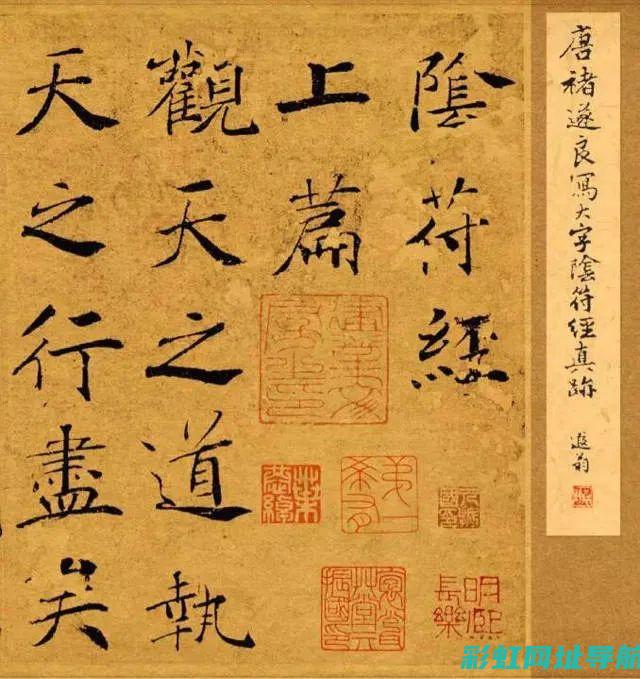 唐褚遂良寫大字陰符經真跡
遐翁
陰符經
上篇
觀天之道執
天之行盡矣
建業文
房之印
彩虹网址导航